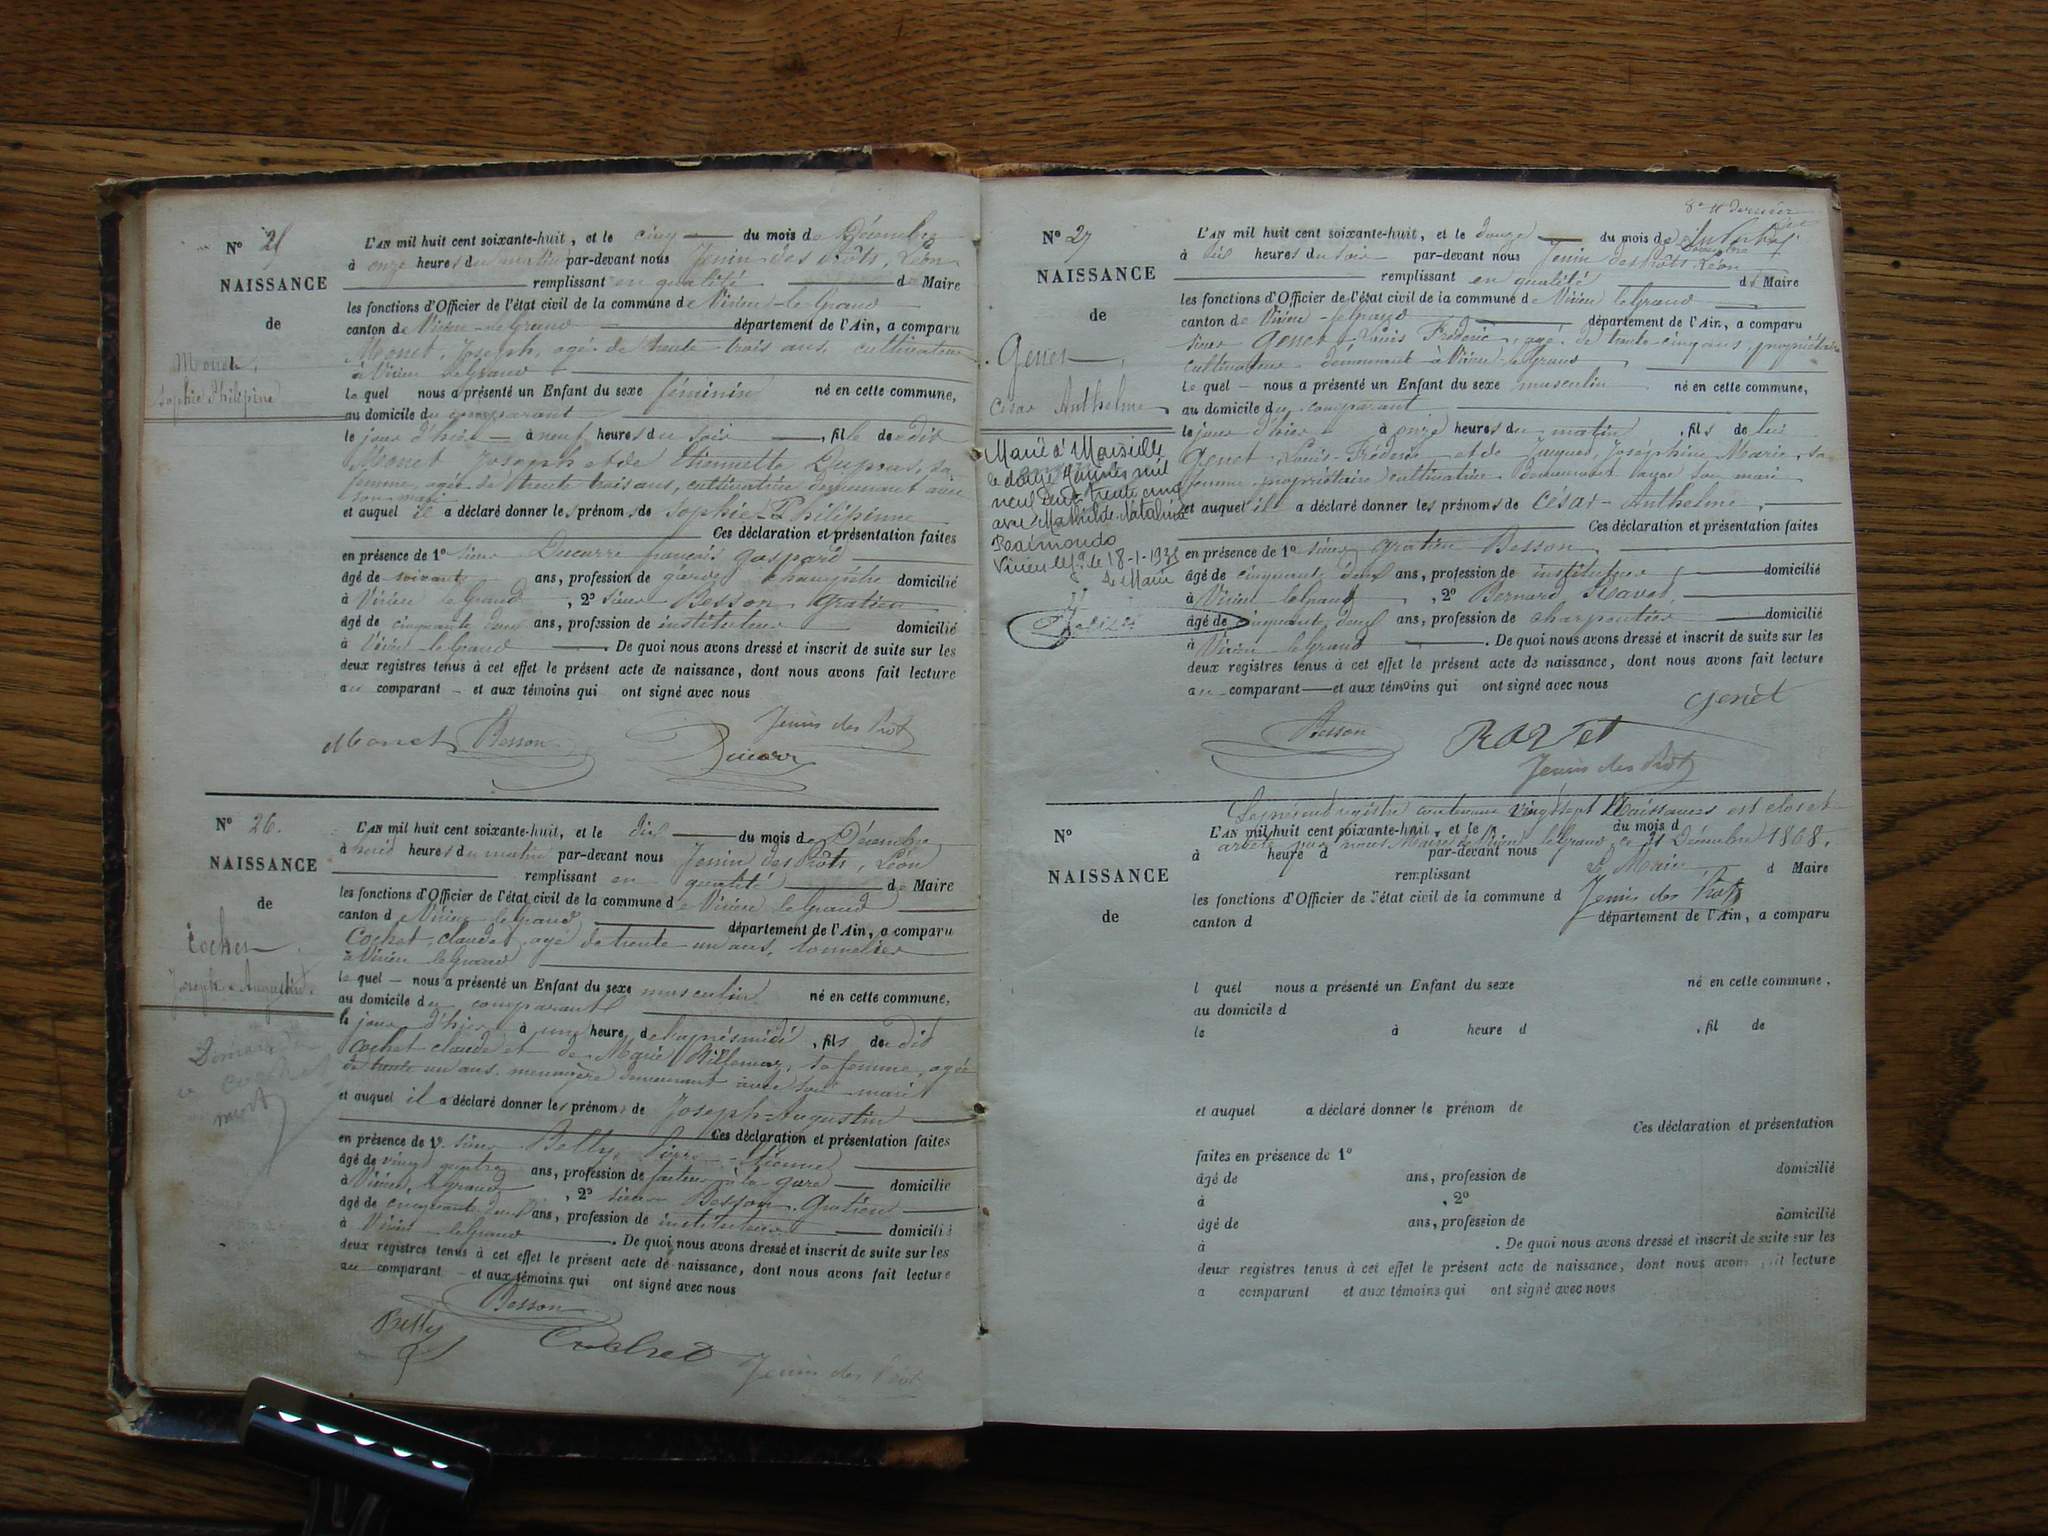 N° 25
NAISSANCE
de
Monet,
Sophie Philipine
L'AN mil huit cent soixante-huit, et le cinq du mois de Décembre
à onze heures du matin par-devant nous Jenin des Prôts, Léon
remplissant en qualité de Maire
les fonctions d'Officier de l'état civil de la commune de Virieu-le-Grand
canton de Virieu-le-Grand département de l'Ain, a comparu
Monet, Joseph, agé de trente trois ans, cultivateur
à Virieu le Grand
le quel nous a présenté un Enfant du sexe féminin né en cette commune,
au domicile du comparant
le jour d'hier à neuf heures du soir, fille de dit
Monet Joseph et de Etiennette Dupras, sa
femme, agée de trente trois ans, cultivatrice demeurant avec
son mari
et auquel il a déclaré donner les prénoms de Sophie-Philipinne
Ces déclaration et présentation faites
en présence de 1° sieur Ducarre françois gaspard
âgé de soixante ans, profession de garde champêtre domicilié
à Virieu le Grand, 2° sieur Besson Gratien
âgé de cinquante deux ans, profession de instituteur domicilié
à Virieu le Grand. De quoi nous avons dressé et inscrit de suite sur les
deux registres tenus à cet effet le présent acte de naissance, dont nous avons fait lecture
au comparant et aux témoins qui ont signé avec nous
Jenin des Prôts
Monet Besson Ducarre
N° 26.
NAISSANCE
de
Cochet
Joseph-Augustin.
mort
L'AN mil huit cent soixante-huit, et le dix du mois de Décembre
à huit heures du matin par-devant nous Jenin des Prôts, Léon
remplissant en qualité de Maire
les fonctions d'Officier de l'état civil de la commune de Virieu le Grand
canton de Virieu le Grand département de l'Ain, a comparu
Cochet, claude, agé de trente un ans, tonnelier
à Virieu le Grand
le quel nous a présenté un Enfant du sexe masculin né en cette commune,
au domicile du comparant
le jour d'hier à une heure de l'après midi, fils de dit
Cochet claude et de Marie sa femme, agée
de trente un ans, menagère demeurant avec son mari
et auquel il a déclaré donner les prénoms de Joseph-Augustin
Ces déclaration et présentation faites
en présence de 1° sieur Belly, Pierre-Etienne
âgé de vingt quatre ans, profession de facteur à la gare domicilié
à Virieu le grand, 2° sieur Besson Gratien
âgé de cinquante deux ans, profession de instituteur domicilié
à Virieu le Grand. De quoi nous avons dressé et inscrit de suite sur les
deux registres tenus à cet effet le présent acte de naissance, dont nous avons fait lecture
au comparant et aux témoins qui ont signé avec nous
Besson
Belly Cochet Jenin des Prôts
8e et dernier
N° 27
NAISSANCE
de
Genet,
César Anthelme
Marié à Marseille
le douze Janvier mil
neuf cent trente cinq
avec Mathilde Natalina
Raimondo
Virieu le Gd le 18-1-1935
Le Maire
L'AN mil huit cent soixante-huit, et le douze du mois de
à six heures du soir par-devant nous Jenin des Prôts Léon
remplissant en qualité de Maire
les fonctions d'Officier de l'état civil de la commune de Virieu le Grand
canton de Virieu-le-Grand département de l'Ain, a comparu
sieur Genet, Louis Fréderic, agé de trente-cinq ans, propriétaire
cultivateur demeurant à Virieu-le-Grand
le quel nous a présenté un Enfant du sexe masculin né en cette commune,
au domicile du comparant
le jour d'hier à onze heures du matin, fils de lui
Genet Louis-Fréderic et de Jacques, Joséphine Marie, sa
femme propriétaire cultivatrice demeurant avec son mari
et auquel il a déclaré donner les prénoms de César-Anthelme,
Ces déclaration et présentation faites
en présence de 1° sieur Gratien Besson
âgé de cinquante deux ans, profession de instituteur domicilié
à Virieu le Grand, 2° Bernard Ravet,
âgé de cinquante deux ans, profession de charpentier domicilié
à Virieu le Grand. De quoi nous avons dressé et inscrit de suite sur les
deux registres tenus à cet effet le présent acte de naissance, dont nous avons fait lecture
au comparant et aux témoins qui ont signé avec nous
Genet
Besson RAVet
Jenin des Prôts
Le présent registre contenant vingt sept Naissances est clos et
arrêté par nous Maire de Virieu le Grand, ce 31 Décembre 1868.
Le Maire
Jenin des Prôts
N°
NAISSANCE
de
L'AN mil huit cent soixante-huit, et le du mois d
à heure d par-devant nous
remplissant d Maire
les fonctions d'Officier de l'état civil de la commune d
canton d département de l'Ain, a comparu
l quel nous a présenté un Enfant du sexe né en cette commune,
au domicile d
le à heure d, fil de
et auquel a déclaré donner le prénom de
Ces déclaration et présentation
faites en présence de 1°
âgé de ans, profession de domicilié
à, 2°
âgé de ans, profession de domicilié
à. De quoi nous avons dressé et inscrit de suite sur les
deux registres tenus à cet effet le présent acte de naissance, dont nous avons fait lecture
a comparant et aux témoins qui ont signé avec nous